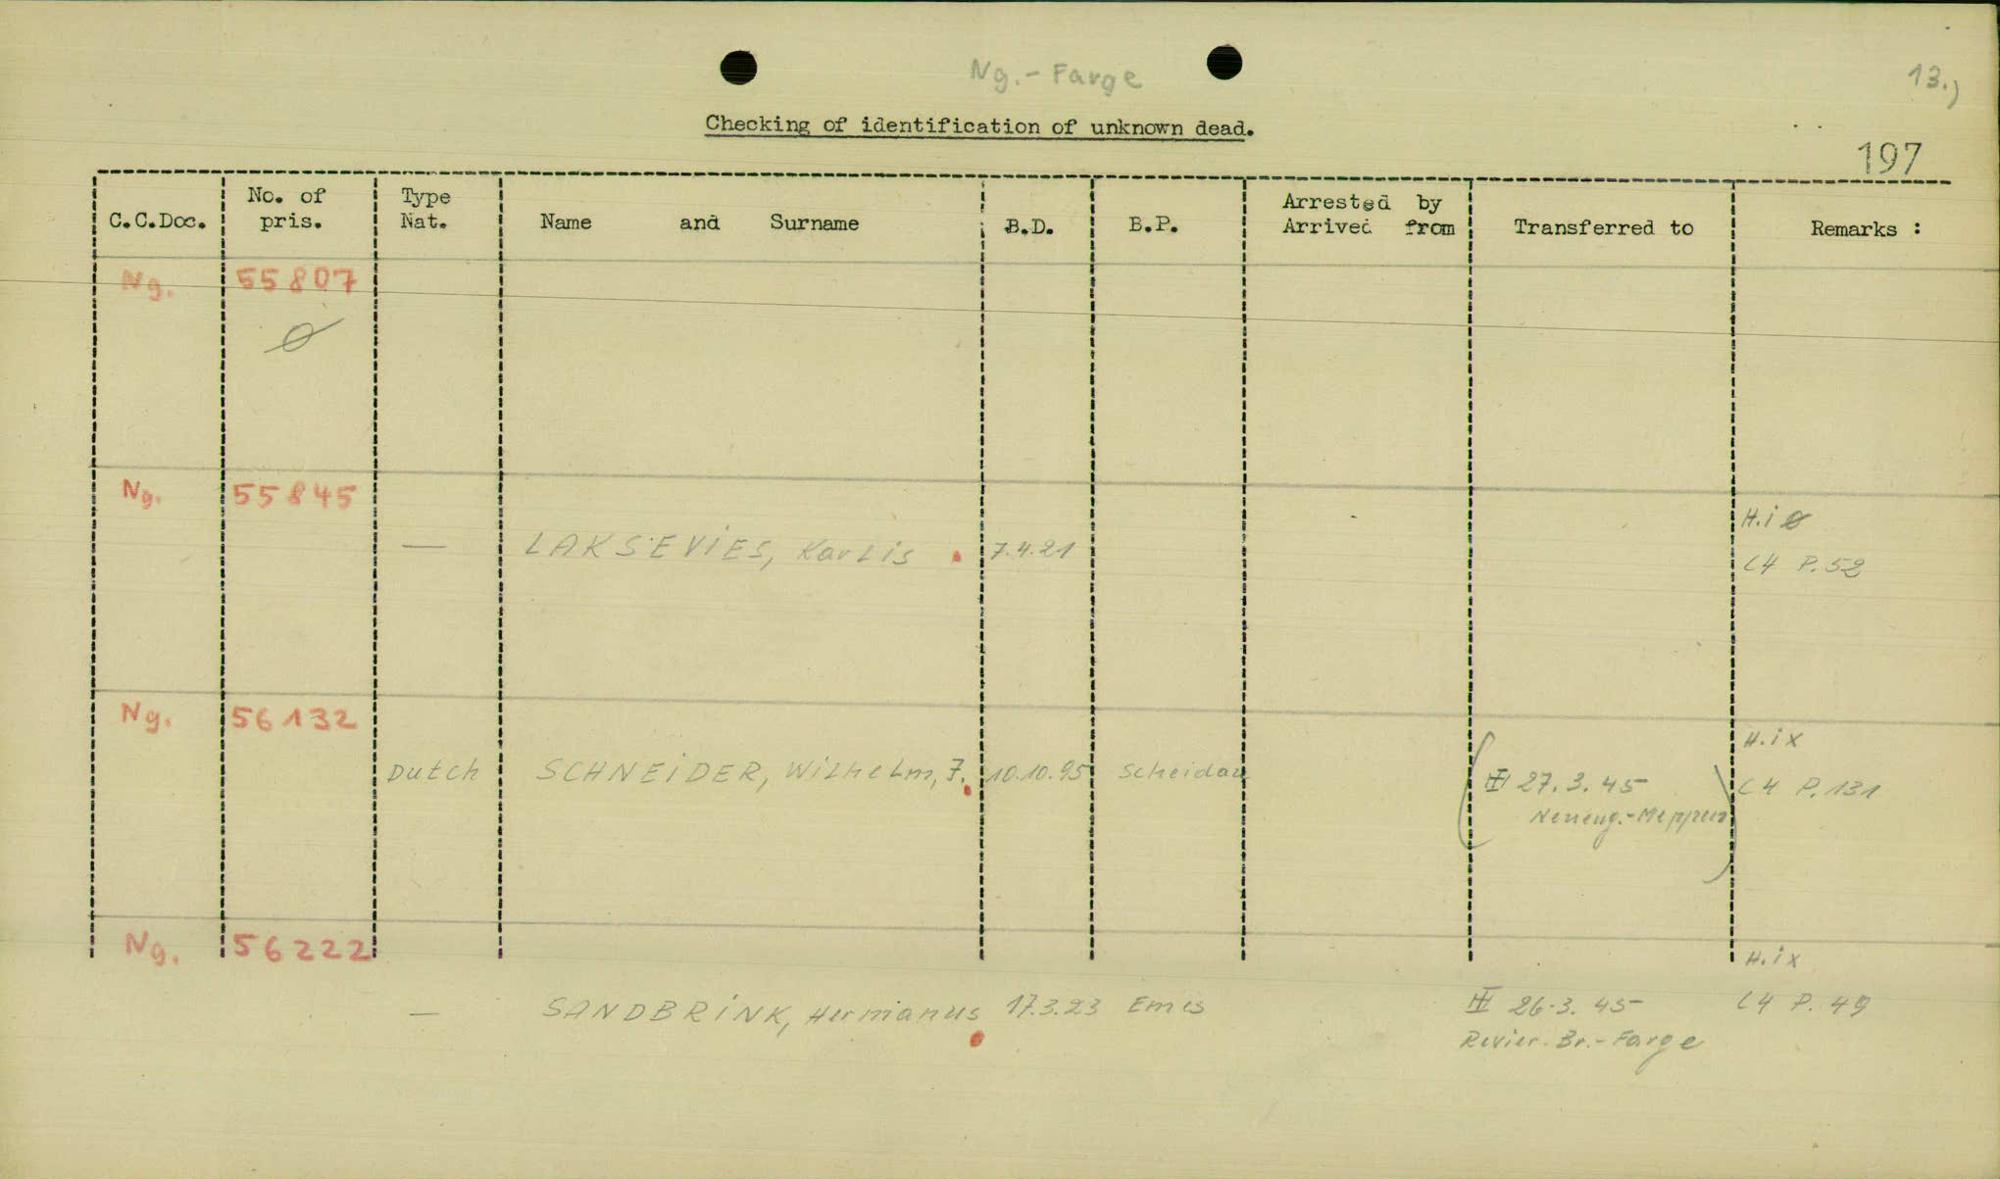 Ng.- Farge
13.)
Checking of identification of unknown dead.
197
C.C.Doc. No. of pris. Type Nat. Name and Surname B.D. B.P. Arrested by Arrived from Transferred to Remarks :
Ng. 55807
Ø
Ng. 55845
H.i Ø
— LAKSEVIES, Karlis 7.4.21
C4 P.52
Ng. 56132
H.i x
Dutch SCHNEIDER, Wilhelm, J. 10.10.95 Scheidau III 27.3.45 C4 P.131
Neueng.-Meppen
Ng. 56222
H.i x
— SANDBRINK, Hermanus 17.3.23 Emes III 26.3.45 C4 P.49
Revier. Br.-Farge